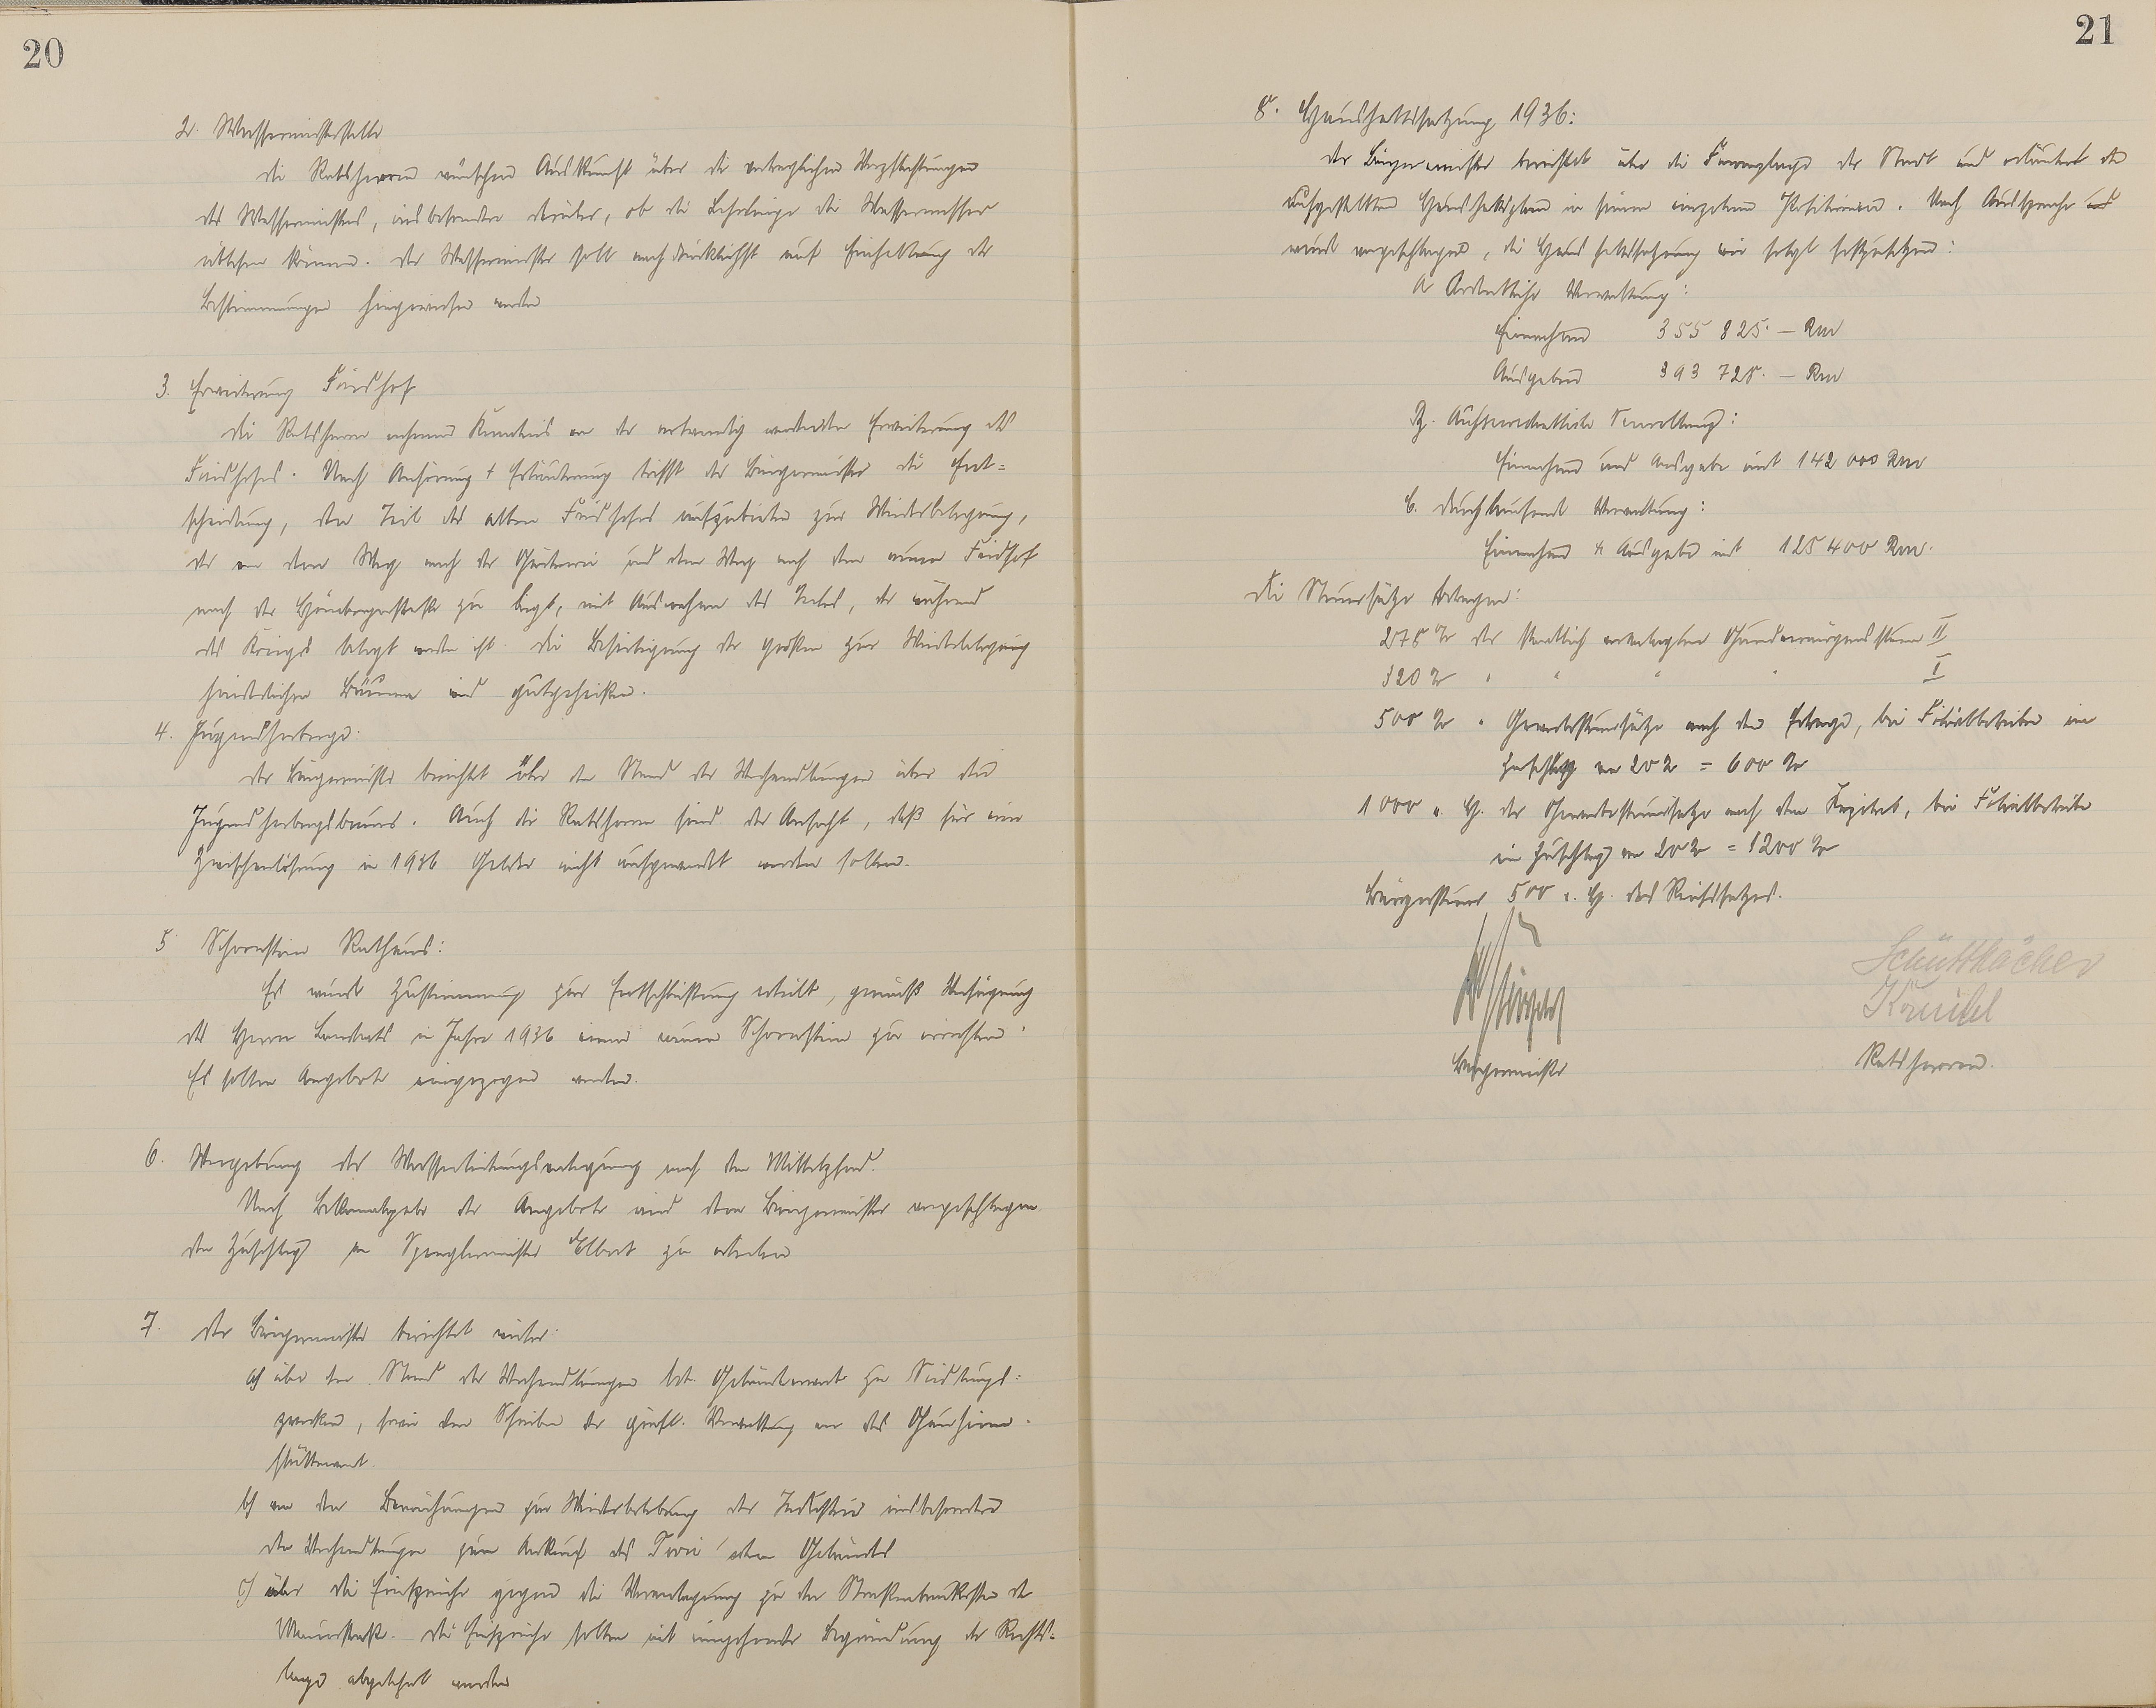 20
2. Wassermeisterstelle
Die Ratsherren wünschen Auskunft über die vertraglichen Verpflichtungen
des Wassermeisters, insbesondere darüber, ob die Lehrlinge die Wassermesser
ablesen können. Der Wassermeister soll nachdrücklichst auf Einhaltung der
Bestimmungen hingewiesen werden
3. Erweiterung Friedhof
Die Ratsherren nehmen Kenntnis von der notwendig werdenden Erweiterung des
Friedhofes. Nach Anhörung + Erläuterung trifft der Bürgermeister die Ent=
scheidung, den Teil des alten Friedhofes aufzubieten zur Wiederbelegung,
der an dem Weg nach der Gärtnerei und dem Weg nach dem neuen Friedhof
nach der zu liegt, mit Ausnahme des Teiles, der während
des Krieges belegt worden ist. Die Beseitigung der großen zur Wiederbelegung
hinderlichen Bäume wird gutgeheißen.
4. Jugendherberge:
Der Bürgermeister berichtet über den Stand der Verhandlungen über den
Jugendherbergsbau. Auch die Ratsherren sind der Ansicht, daß für eine
Zwischenlösung in 1936 Gelder nicht aufgewendet werden sollen.
5 Schornstein Rathaus:
Es wurde Zustimmung zur Entschließung erteilt, gemäß Verfügung
des Herrn Landrats im Jahre 1936 einen neuen Schornstein zu errichten.
Es sollen Angebote eingezogen werden.
6. Vergebung der Wasserleitungsverlegung nach dem Mittelpfad.
Nach Bekanntgabe der Angebote wird dem Bürgermeister vorgeschlagen
den Zuschlag an Spenglermeister Elbert zu erteilen
7. Der Bürgermeister berichtet weiter:
a) über den Stand der Verhandlungen betr. Geländeerwerb zu Siedlungs=
zwecken, sowie dem Schreiben der gräfl. Verwaltung an das Gauheim-
stättenamt.
b) von den Bemühungen zur Wiederbelebung der Industrie insbesondere
den Verhandlungen zum Ankauf des Gebäudes
c) über die Einsprüche gegen die Veranlagung zu den Straßenbaukosten der
Die Einsprüche sollen mit eingehender Begründung der Rechts-
lage abgelehnt werden
21
8. Haushaltssatzung 1936:
Der Bürgermeister berichtet über die Finanzlage der Stadt und erläutert den
aufgestellten Haushaltsplan in seinen einzelnen Positionen. Nach Aussprache
wird vorgeschlagen, die Haushaltssatzung wie folgt festzusetzen:
A Ordentliche Verwaltung:
Einnahmen 355 825.— Rm
Ausgaben 393 725.— Rm
B. Außerordentliche Verwaltung:
Einnahmen und Ausgabe mit 142 000 Rm
C. Durchlaufende Verwaltung:
Einnahmen & Ausgaben mit 125 400 Rm.
Die Steuersätze betragen:
275 % der staatlich veranlagten Grundvermögenssteuer II
320 % " " " " I
500 % " Gewerbesteuersätze nach dem Ertrage, bei Filialbetrieben ein
Zuschlag von 20 % = 600 %
1000 v. H. der Gewerbesteuersätze nach dem Kapital, bei Filialbetrieben
ein Zuschlag von 20 % = 1200 %
Bürgersteuer 500 v. H. des Reichssatzes.
Schüttkäcker
Kreidel
Bürgermeister
Ratsherren.